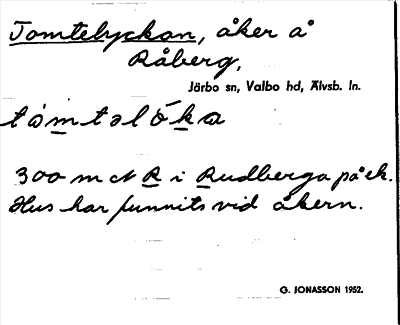 Tomtelyckan, åker å
Råberg,
Järbo sn, Valbo hd, Älvsb. ln.
300 m
R i Rudberga på ek.
Hus har funnits vid åkern.
G. JONASSON 1952.